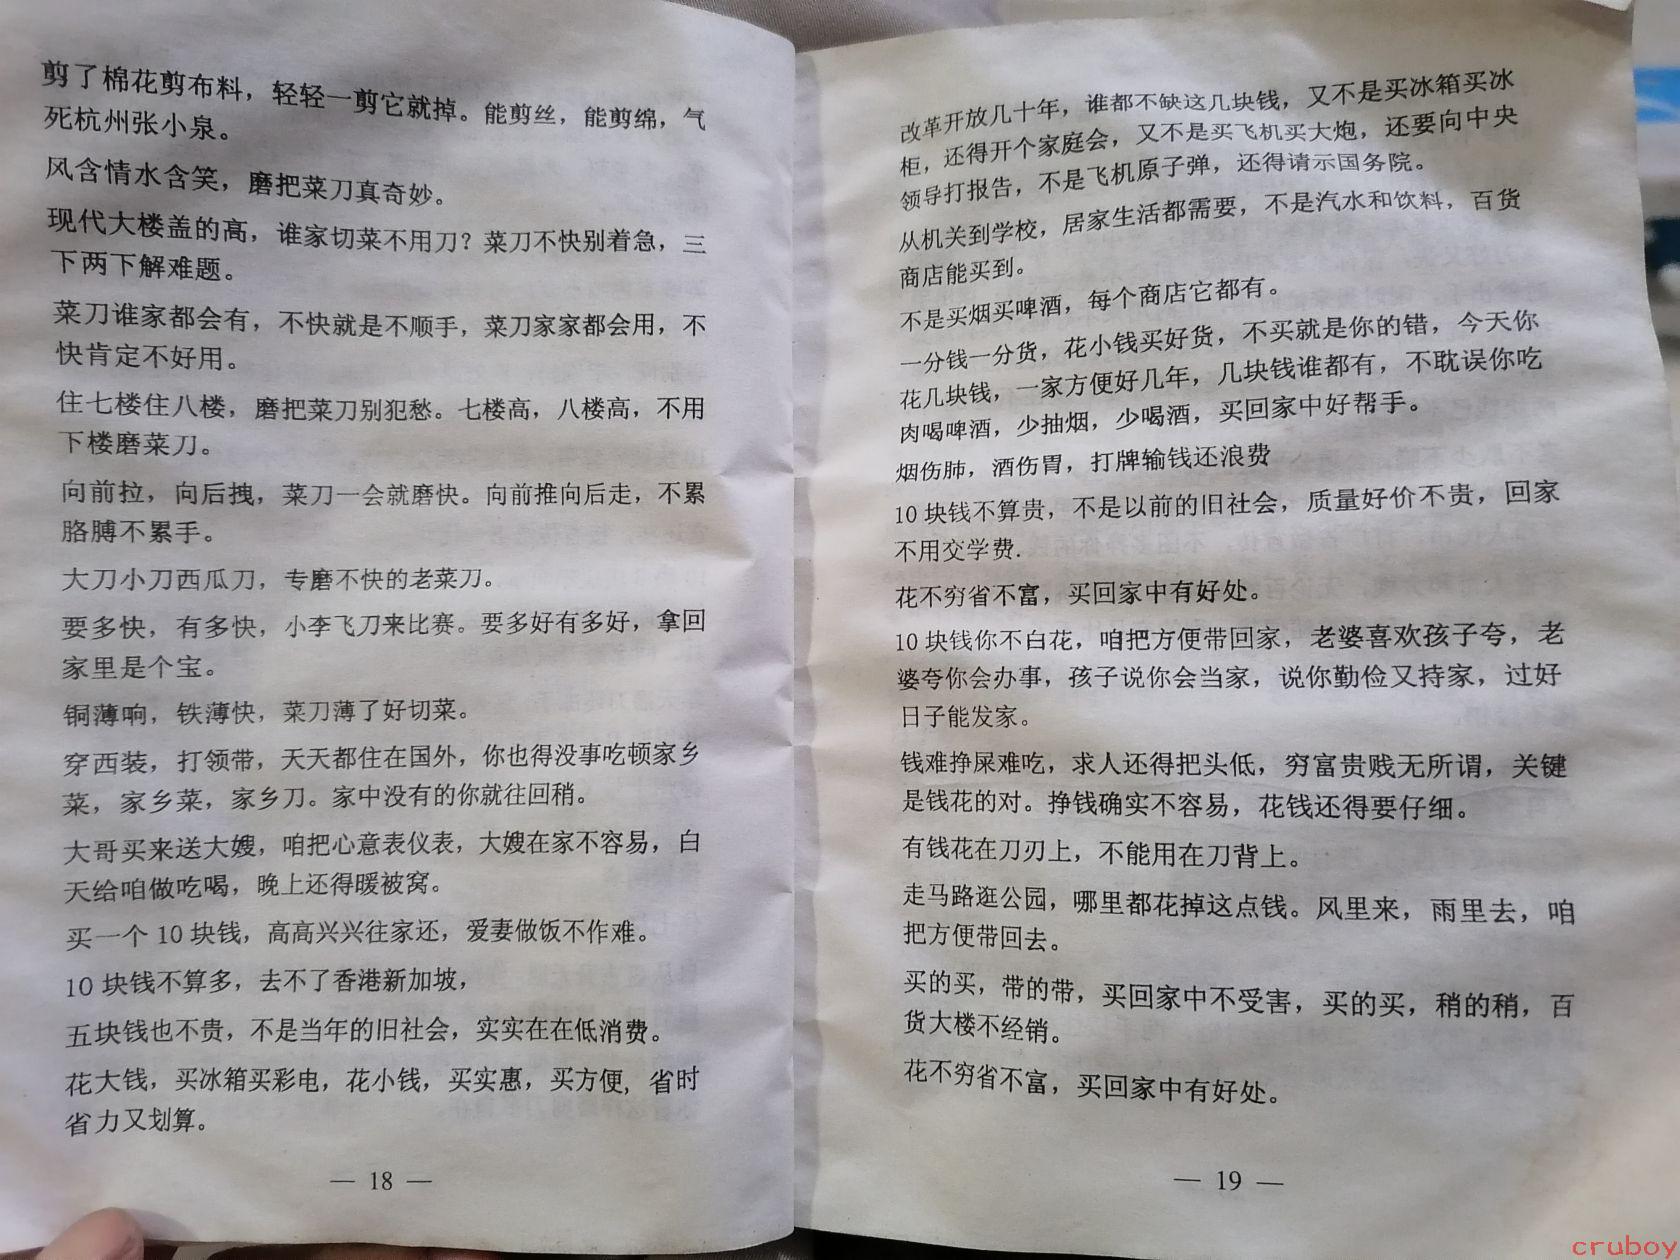 剪了棉花剪布料，轻轻一剪它就掉。能剪丝，能剪绵，气
死杭州张小泉。
风含情水含笑，磨把菜刀真奇妙。
现代大楼盖的高，谁家切菜不用刀？菜刀不快别着急，三
下两下解难题。
菜刀谁家都会有，不快就是不顺手，菜刀家家都会用，不
快肯定不好用。
住七楼住八楼，磨把菜刀别犯愁。七楼高，八楼高，不用
下楼磨菜刀。
向前拉，向后拽，菜刀一会就磨快。向前推向后走，不累
胳膊不累手。
大刀小刀西瓜刀，专磨不快的老菜刀。
要多快，有多快，小李飞刀来比赛。要多好有多好，拿回
家里是个宝。
铜薄响，铁薄快，菜刀薄了好切菜。
穿西装，打领带，天天都住在国外，你也得没事吃顿家乡
菜，家乡菜，家乡刀。家中没有的你就往回稍。
大哥买来送大嫂，咱把心意表仪表，大嫂在家不容易，白
天给咱做吃喝，晚上还得暖被窝。
买一个10块钱，高高兴兴往家还，爱妻做饭不作难。
10块钱不算多，去不了香港新加坡，
五块钱也不贵，不是当年的旧社会，实实在在低消费。
花大钱，买冰箱买彩电，花小钱，买实惠，买方便，省时
省力又划算。
— 18 —
改革开放几十年，谁都不缺这几块钱，又不是买冰箱买冰
柜，还得开个家庭会，又不是买飞机买大炮，还要向中央
领导打报告，不是飞机原子弹，还得请示国务院。
从机关到学校，居家生活都需要，不是汽水和饮料，百货
商店能买到。
不是买烟买啤酒，每个商店它都有。
一分钱一分货，花小钱买好货，不买就是你的错，今天你
花几块钱，一家方便好几年，几块钱谁都有，不耽误你吃
肉喝啤酒，少抽烟，少喝酒，买回家中好帮手。
烟伤肺，酒伤胃，打牌输钱还浪费
10块钱不算贵，不是以前的旧社会，质量好价不贵，回家
不用交学费.
花不穷省不富，买回家中有好处。
10块钱你不白花，咱把方便带回家，老婆喜欢孩子夸，老
婆夸你会办事，孩子说你会当家，说你勤俭又持家，过好
日子能发家。
钱难挣屎难吃，求人还得把头低，穷富贵贱无所谓，关键
是钱花的对。挣钱确实不容易，花钱还得要仔细。
有钱花在刀刃上，不能用在刀背上。
走马路逛公园，哪里都花掉这点钱。风里来，雨里去，咱
把方便带回去。
买的买，带的带，买回家中不受害，买的买，稍的稍，百
货大楼不经销。
花不穷省不富，买回家中有好处。
— 19 —
cruboy